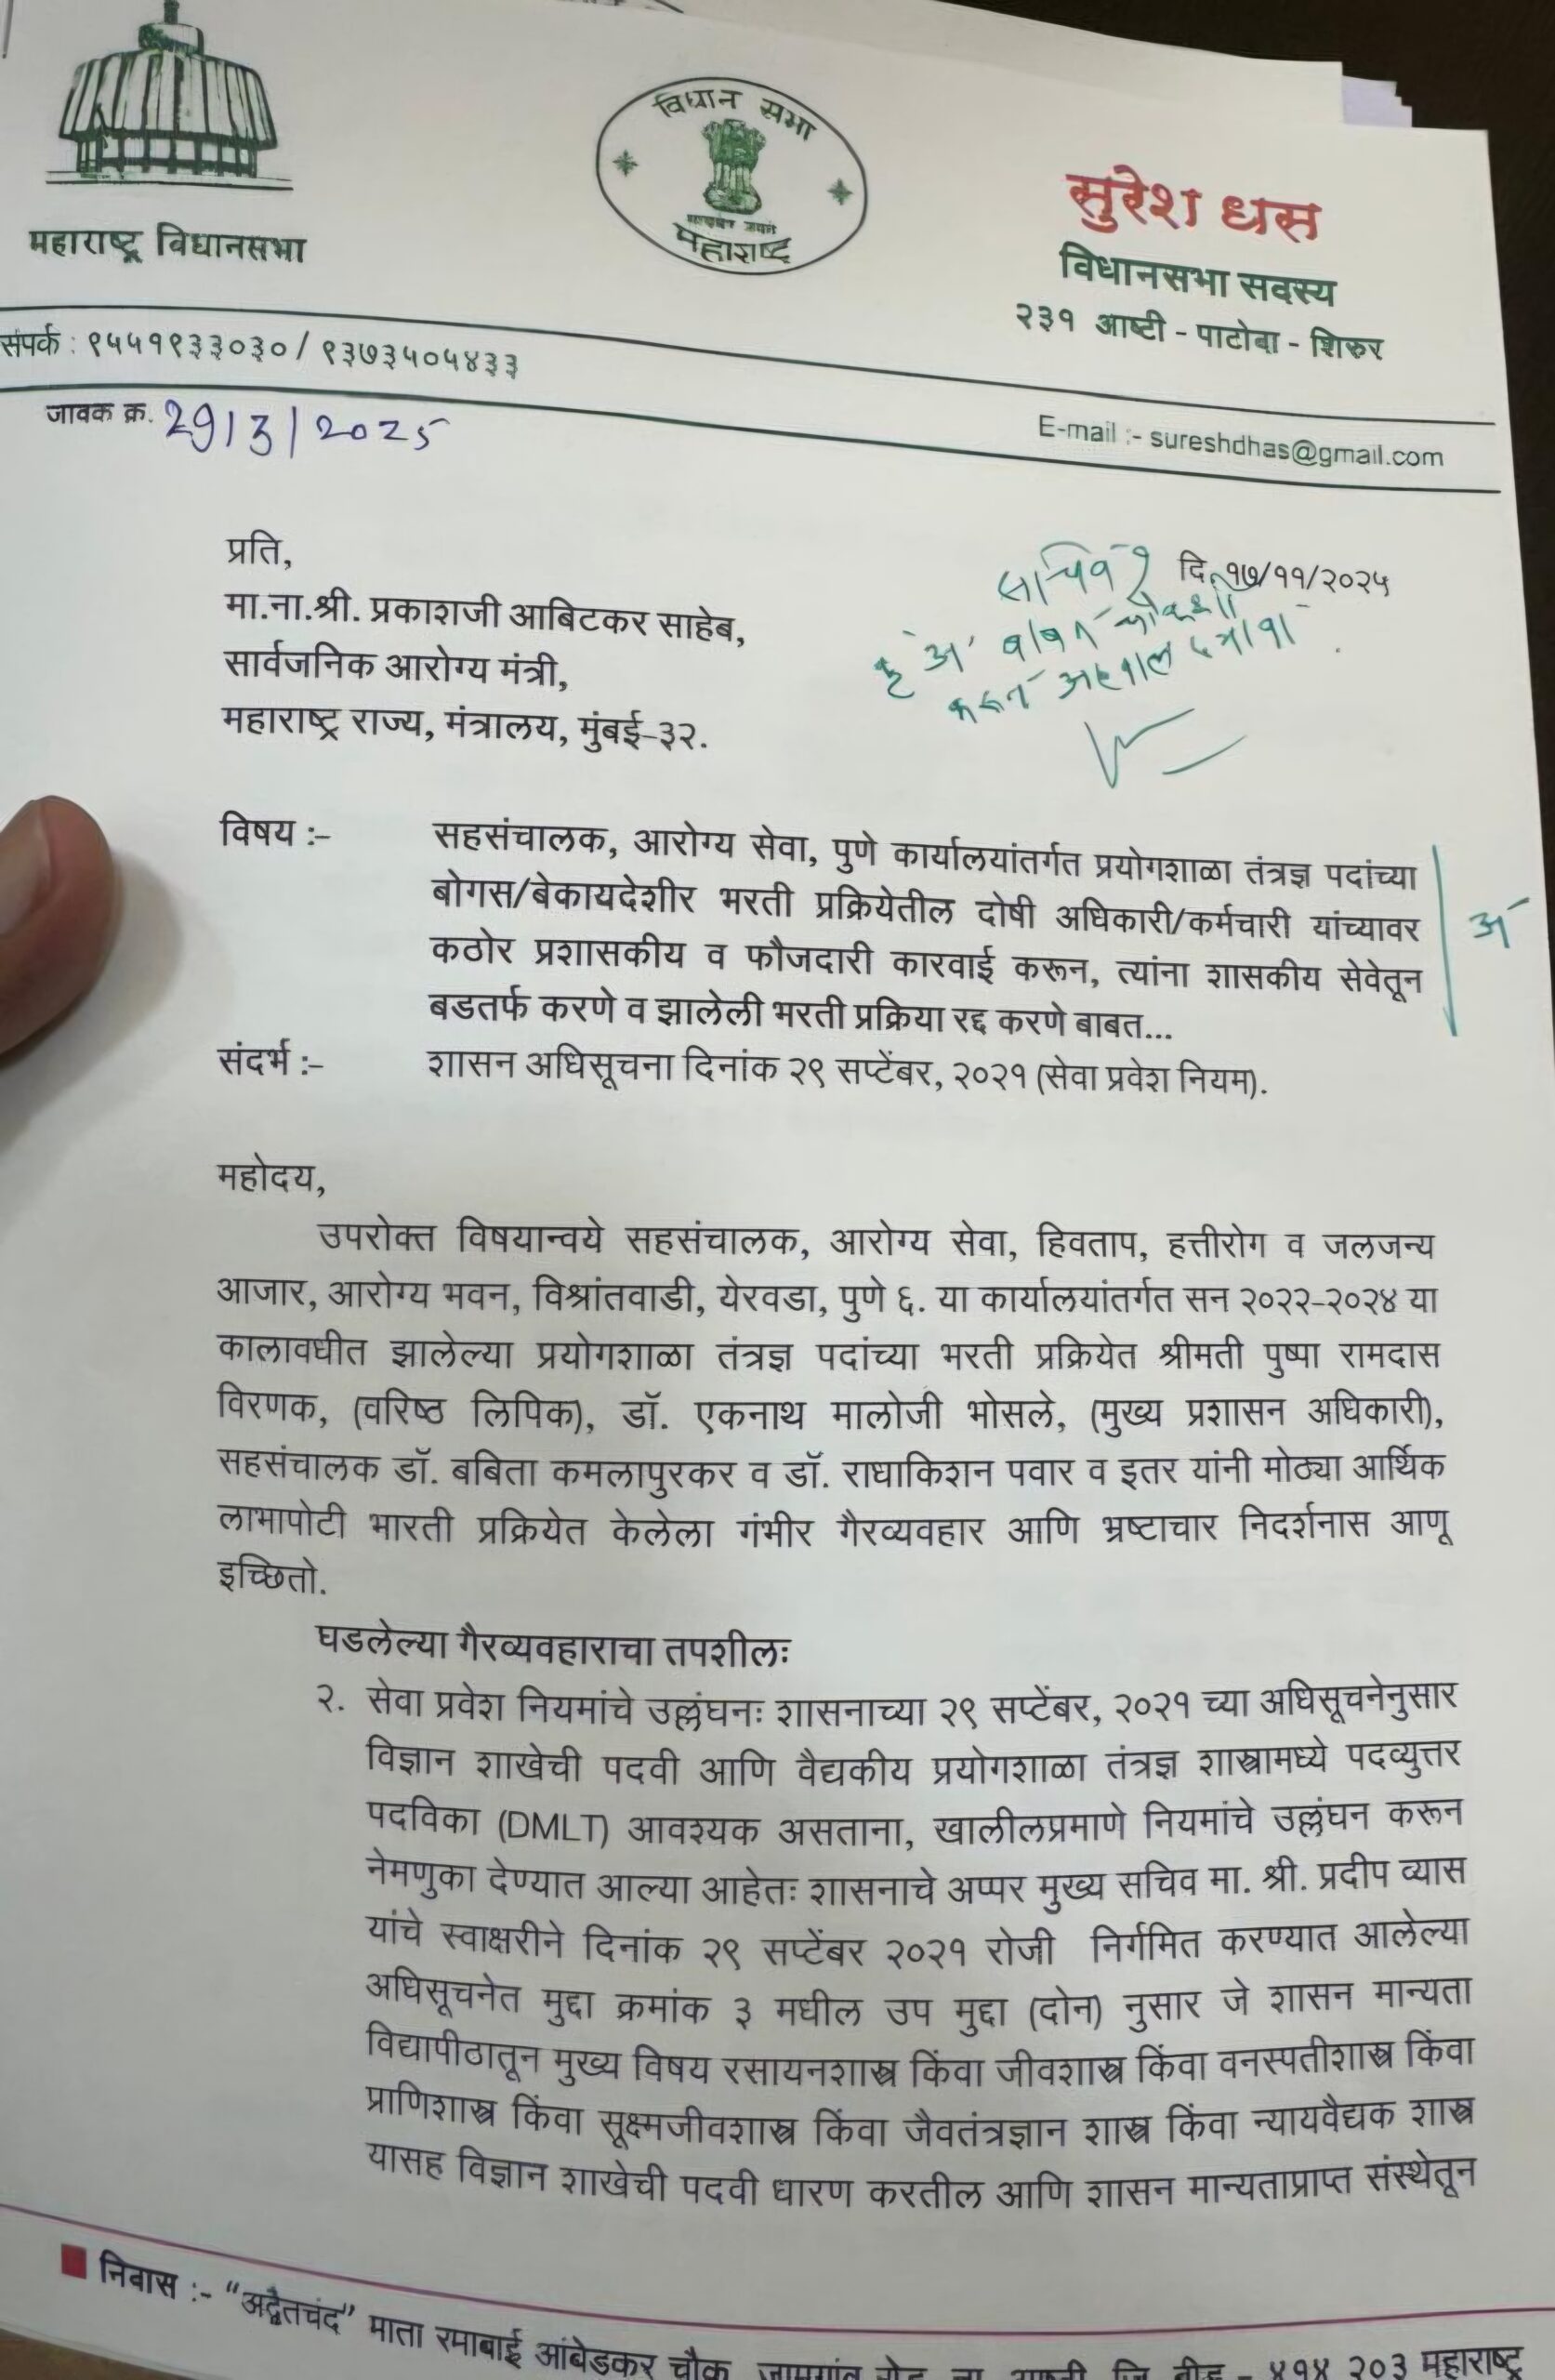 महाराष्ट्र विधानसभा
विधान सभा
सत्यमेव जयते
महाराष्ट्र
सुरेश धस
विधानसभा सदस्य
२३१ आष्टी - पाटोदा - शिरुर
संपर्क : ९५५१९३३०३० / ९३७३५०५४३३
जावक क्र. 29/3/2025
E-mail :- sureshdhas@gmail.com
दि. १७/११/२०२५
सचिव २
'अ' बाबत चौकशी
करून अहवाल द्यावा
प्रति,
मा.ना.श्री. प्रकाशजी आबिटकर साहेब,
सार्वजनिक आरोग्य मंत्री,
महाराष्ट्र राज्य, मंत्रालय, मुंबई-३२.
विषय :- सहसंचालक, आरोग्य सेवा, पुणे कार्यालयांतर्गत प्रयोगशाळा तंत्रज्ञ पदांच्या
बोगस/बेकायदेशीर भरती प्रक्रियेतील दोषी अधिकारी/कर्मचारी यांच्यावर
अ
कठोर प्रशासकीय व फौजदारी कारवाई करून, त्यांना शासकीय सेवेतून
बडतर्फ करणे व झालेली भरती प्रक्रिया रद्द करणे बाबत...
संदर्भ :- शासन अधिसूचना दिनांक २९ सप्टेंबर, २०२१ (सेवा प्रवेश नियम).
महोदय,
उपरोक्त विषयान्वये सहसंचालक, आरोग्य सेवा, हिवताप, हत्तीरोग व जलजन्य
आजार, आरोग्य भवन, विश्रांतवाडी, येरवडा, पुणे ६. या कार्यालयांतर्गत सन २०२२-२०२४ या
कालावधीत झालेल्या प्रयोगशाळा तंत्रज्ञ पदांच्या भरती प्रक्रियेत श्रीमती पुष्पा रामदास
विरणक, (वरिष्ठ लिपिक), डॉ. एकनाथ मालोजी भोसले, (मुख्य प्रशासन अधिकारी),
सहसंचालक डॉ. बबिता कमलापुरकर व डॉ. राधाकिशन पवार व इतर यांनी मोठ्या आर्थिक
लाभापोटी भारती प्रक्रियेत केलेला गंभीर गैरव्यवहार आणि भ्रष्टाचार निदर्शनास आणू
इच्छितो.
घडलेल्या गैरव्यवहाराचा तपशीलः
२. सेवा प्रवेश नियमांचे उल्लंघनः शासनाच्या २९ सप्टेंबर, २०२१ च्या अधिसूचनेनुसार
विज्ञान शाखेची पदवी आणि वैद्यकीय प्रयोगशाळा तंत्रज्ञ शास्त्रामध्ये पदव्युत्तर
पदविका (DMLT) आवश्यक असताना, खालीलप्रमाणे नियमांचे उल्लंघन करून
नेमणुका देण्यात आल्या आहेतः शासनाचे अप्पर मुख्य सचिव मा. श्री. प्रदीप व्यास
यांचे स्वाक्षरीने दिनांक २९ सप्टेंबर २०२१ रोजी निर्गमित करण्यात आलेल्या
अधिसूचनेत मुद्दा क्रमांक ३ मधील उप मुद्दा (दोन) नुसार जे शासन मान्यता
विद्यापीठातून मुख्य विषय रसायनशास्त्र किंवा जीवशास्त्र किंवा वनस्पतीशास्त्र किंवा
प्राणिशास्त्र किंवा सूक्ष्मजीवशास्त्र किंवा जैवतंत्रज्ञान शास्त्र किंवा न्यायवैद्यक शास्त्र
यासह विज्ञान शाखेची पदवी धारण करतील आणि शासन मान्यताप्राप्त संस्थेतून
निवास :- "अद्वैतचंद" माता रमाबाई आंबेडकर चौक, जामगांव रोड, ता. आष्टी, जि. बीड - ४१४ २०३ महाराष्ट्र